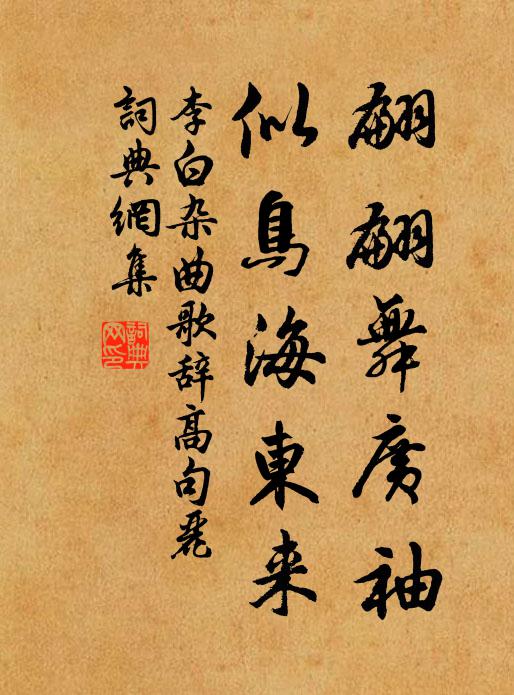 翩翩舞廣袖
似鳥海東来
李白杂曲歌辞高句麗
詞典網集
詞典网印